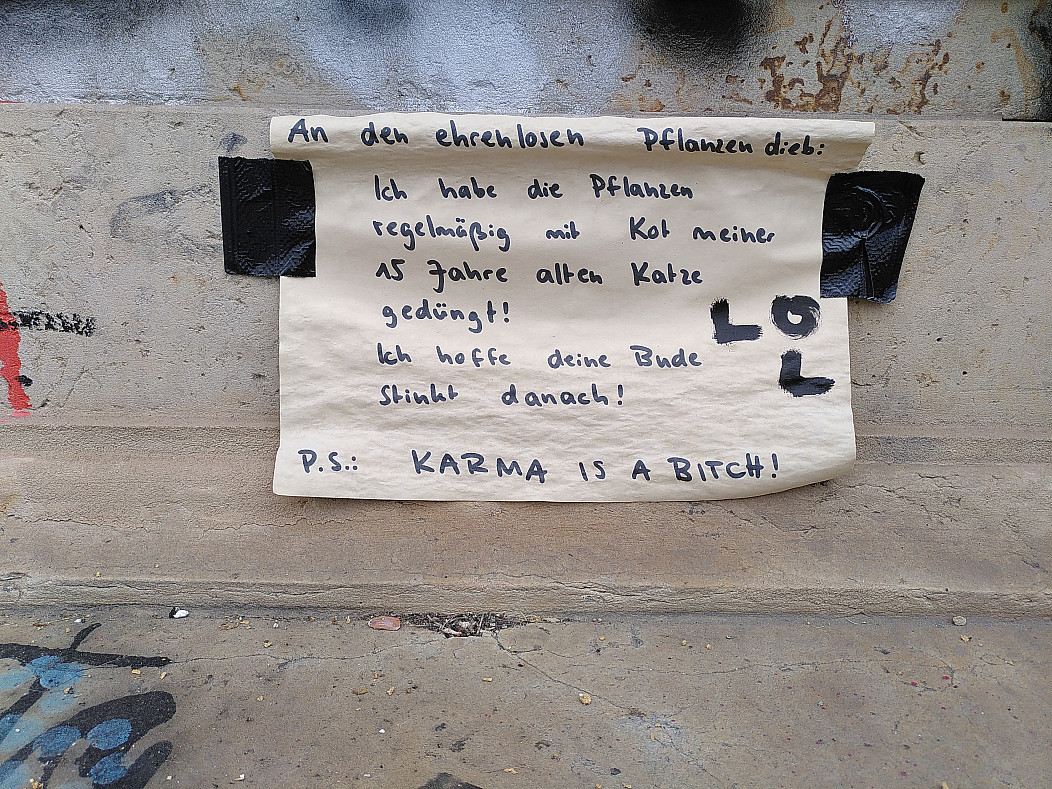 An den ehrenlosen Pflanzen dieb:
Ich habe die Pflanzen
regelmäßig mit Kot meiner
15 Jahre alten Katze
gedüngt!
Ich hoffe deine Bude
stinkt danach!
LO
L
P.S.: KARMA IS A BITCH!